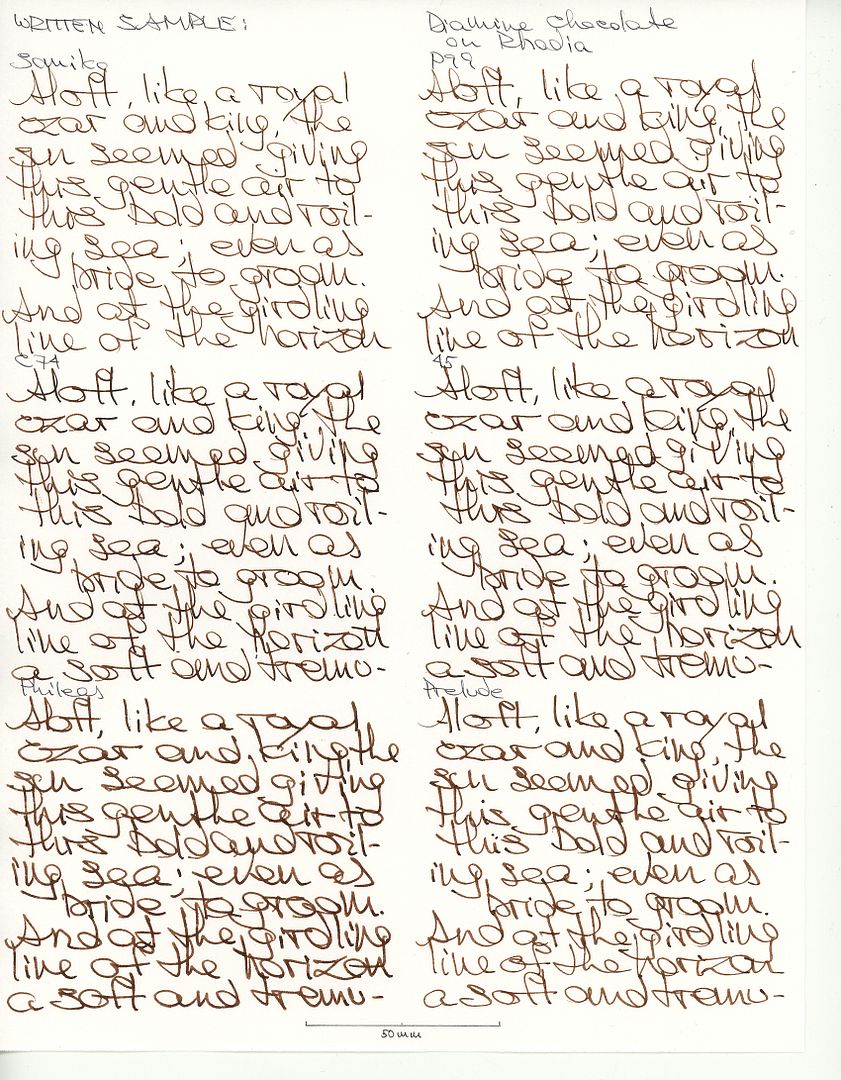 WRITTEN SAMPLE:
Diamine Chocolate
on Rhodia
Aloft, like a royal
czar and king, the
sun seemed giving
this gentle air to
this bold and roll-
ing sea; even as
bride to groom.
And at the girdling
line of the horizon
P99
Aloft, like a royal
czar and king, the
sun seemed giving
this gentle air to
this bold and roll-
ing sea; even as
bride to groom.
And at the girdling
line of the horizon
C74
Aloft, like a royal
czar and king, the
sun seemed giving
this gentle air to
this bold and roll-
ing sea; even as
bride to groom.
And at the girdling
line of the horizon
a soft and tremu-
45
Aloft, like a royal
czar and king, the
sun seemed giving
this gentle air to
this bold and roll-
ing sea; even as
bride to groom.
And at the girdling
line of the horizon
a soft and tremu-
Phileas
Aloft, like a royal
czar and king, the
sun seemed giving
this gentle air to
this bold and roll-
ing sea; even as
bride to groom.
And at the girdling
line of the horizon
a soft and tremu-
Prelude
Aloft, like a royal
czar and king, the
sun seemed giving
this gentle air to
this bold and roll-
ing sea; even as
bride to groom.
And at the girdling
line of the horizon
a soft and tremu-
50 mm